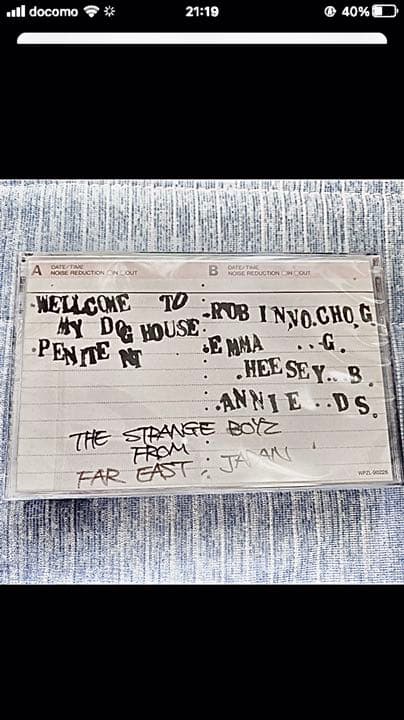 docomo 21:19 40%
A DATE/TIME
NOISE REDUCTION □IN □OUT
B DATE/TIME
NOISE REDUCTION □IN □OUT
·WELLCOME TO
MY DOG HOUSE.
·PENITENT
·ROB INVO.CHO,G
·EMMA ...G.
.HEESEY...B.
.ANNIE..DS.
THE STRANGE BOYZ
FROM
FAR EAST : JAPAN
WPZL-90226